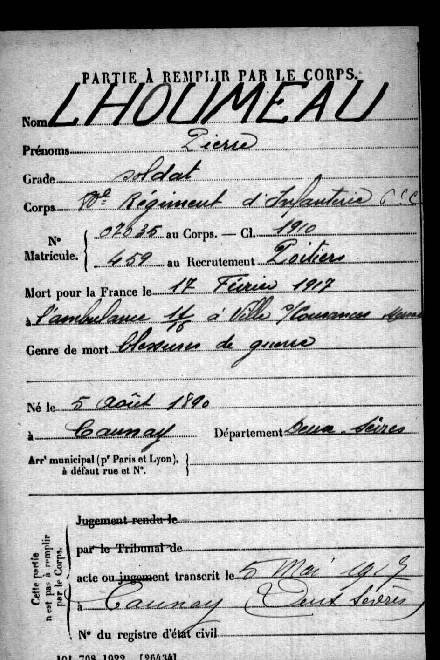 PARTIE À REMPLIR PAR LE CORPS.
Nom LHOUMEAU
Prénoms Pierre
Grade soldat
Corps Régiment d'Infanterie
N° Matricule. 07635 au Corps. — Cl. 1910
459 au Recrutement Poitiers
Mort pour la France le 17 Février 1917
à l'ambulance à Ville s/Cousances Meuse
Genre de mort blessures de guerre
Né le 5 août 1890
à Caunay Département Deux-Sèvres
Arrt municipal (pr Paris et Lyon), à défaut rue et N°.
Cette partie n'est pas à remplir par le Corps.
Jugement rendu le
par le Tribunal de
acte ou jugement transcrit le 5 Mai
à Caunay (Deux Sèvres)
N° du registre d'état civil